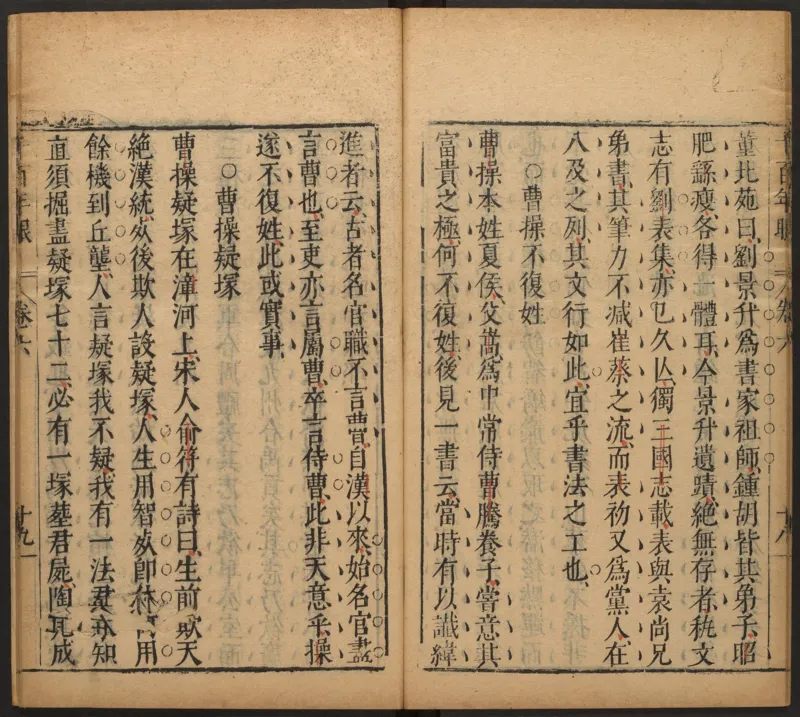 董北苑曰劉景升爲書家祖師鍾胡皆其弟子昭
肥繇瘦各得一體耳今景升遺蹟絶無存者秇文
志有劉表集亦已久亾獨三國志載表與袁尚兄
弟書其筆力不减崔蔡之流而表初又爲黨人在
八及之列其文行如此宜乎書法之工也
○曹操不復姓
曹操本姓夏侯父嵩爲中常侍曹騰養子嘗意其
富貴之極何不復姓後見一書云當時有以讖緯
進者云古者名官職不言曹自漢以來始名官盡
言曹也至吏亦言屬曹卒言侍曹此非天意乎操
遂不復姓此或實事
○曹操疑塚
曹操疑塚在漳河上宋人俞符有詩曰生前欺天
絶漢統死後欺人設疑塚人生用智死即休何用
餘機到丘壟人言疑塚我不疑我有一法君未知
直須掘盡疑塚七十二必有一塚塟君屍陶瓦成
千百年眼
卷六
十八
千百年眼
卷六
十九